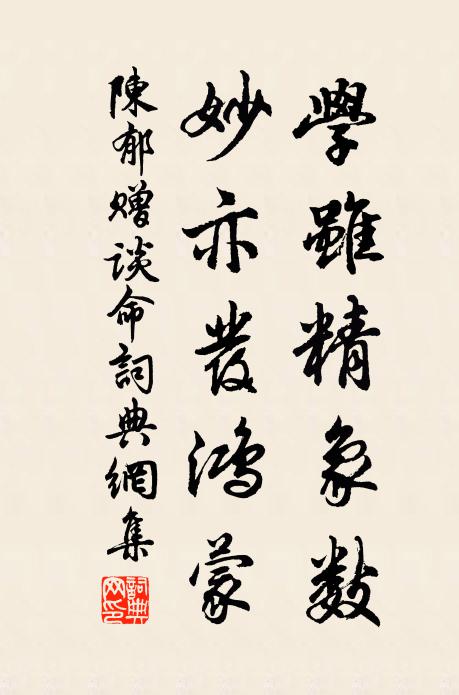 學雖精象數
妙亦發鴻蒙
陳郁贈談命詞典網集
詞典網印